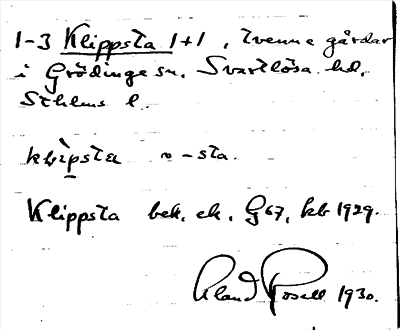 1-3 Klippsta 1+1, tvenne gårdar
i Grödinge sn, Svartlösa hd,
Sthlms l.
klìpsta o -sta.
Klippsta bek. ek. G67, kb 1929.
Erland Rosell 1930.